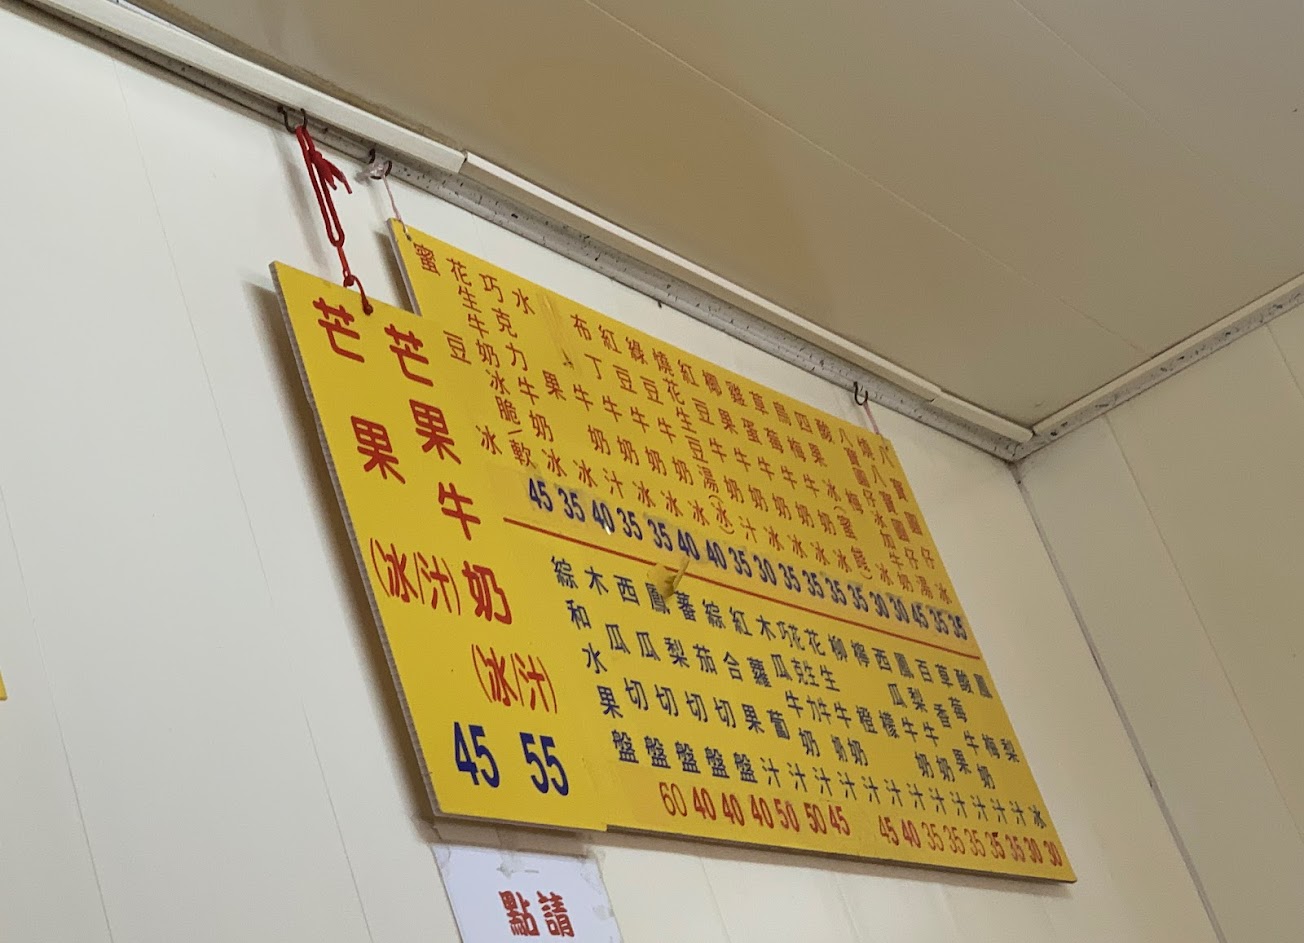 八寶圓仔冰
燒八寶圓仔湯
八寶圓仔冰加牛奶
酸梅冰
四果冰(蜜餞)
烏梅牛奶冰
草莓牛奶冰
雞蛋牛奶冰
椰果牛奶冰
布丁牛奶冰
水果冰
巧克力牛奶冰
花生牛奶冰脆/軟
蜜豆冰
45 35 40 35 35 40 40 35 30 35 35 35 35 30 30 45 35 35
鳳梨冰
酸梅汁
草莓牛奶汁
百香果汁
鳳梨牛奶汁
西瓜牛奶汁
檸檬汁
柳橙汁
花生牛奶汁
巧克力牛奶汁
木瓜牛奶汁
紅蘿蔔汁
綜合果汁
蕃茄切盤
鳳梨切盤
西瓜切盤
木瓜切盤
綜和水果盤
60 40 40 40 50 50 45 45 40 35 35 35 35 35 30 30
芒果牛奶(冰/汁)
55
芒果(冰/汁)
45
點請